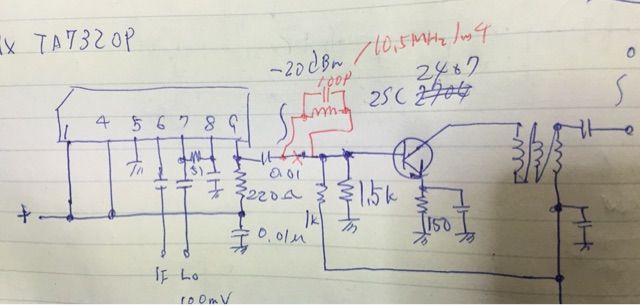 TA7320P
-20dBm
10.5MHz
100P
2SC
2487
1 4 5 6 7 8 9
51
0.01
220Ω
1k
1.5k
150
0.01μ
IF Lo
100mV